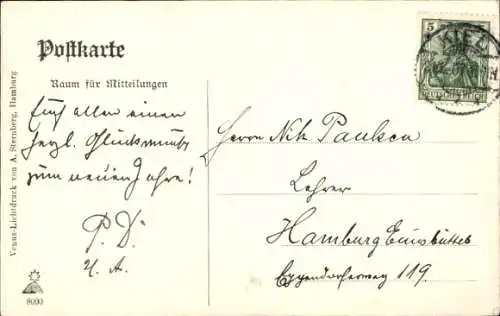 Postkarte
Raum für Mitteilungen
Euch allen einen
herzl. Glückwunsch
zum neuen Jahre!
P. V.
u. A.
Herrn Nik Paulsen
Lehrer
Hamburg Eimsbüttel
Eppendorferweg 119.
5 5
DEUTSCHES REICH
KIEL
Venus-Lichtdruck von A. Sternberg, Hamburg
8090